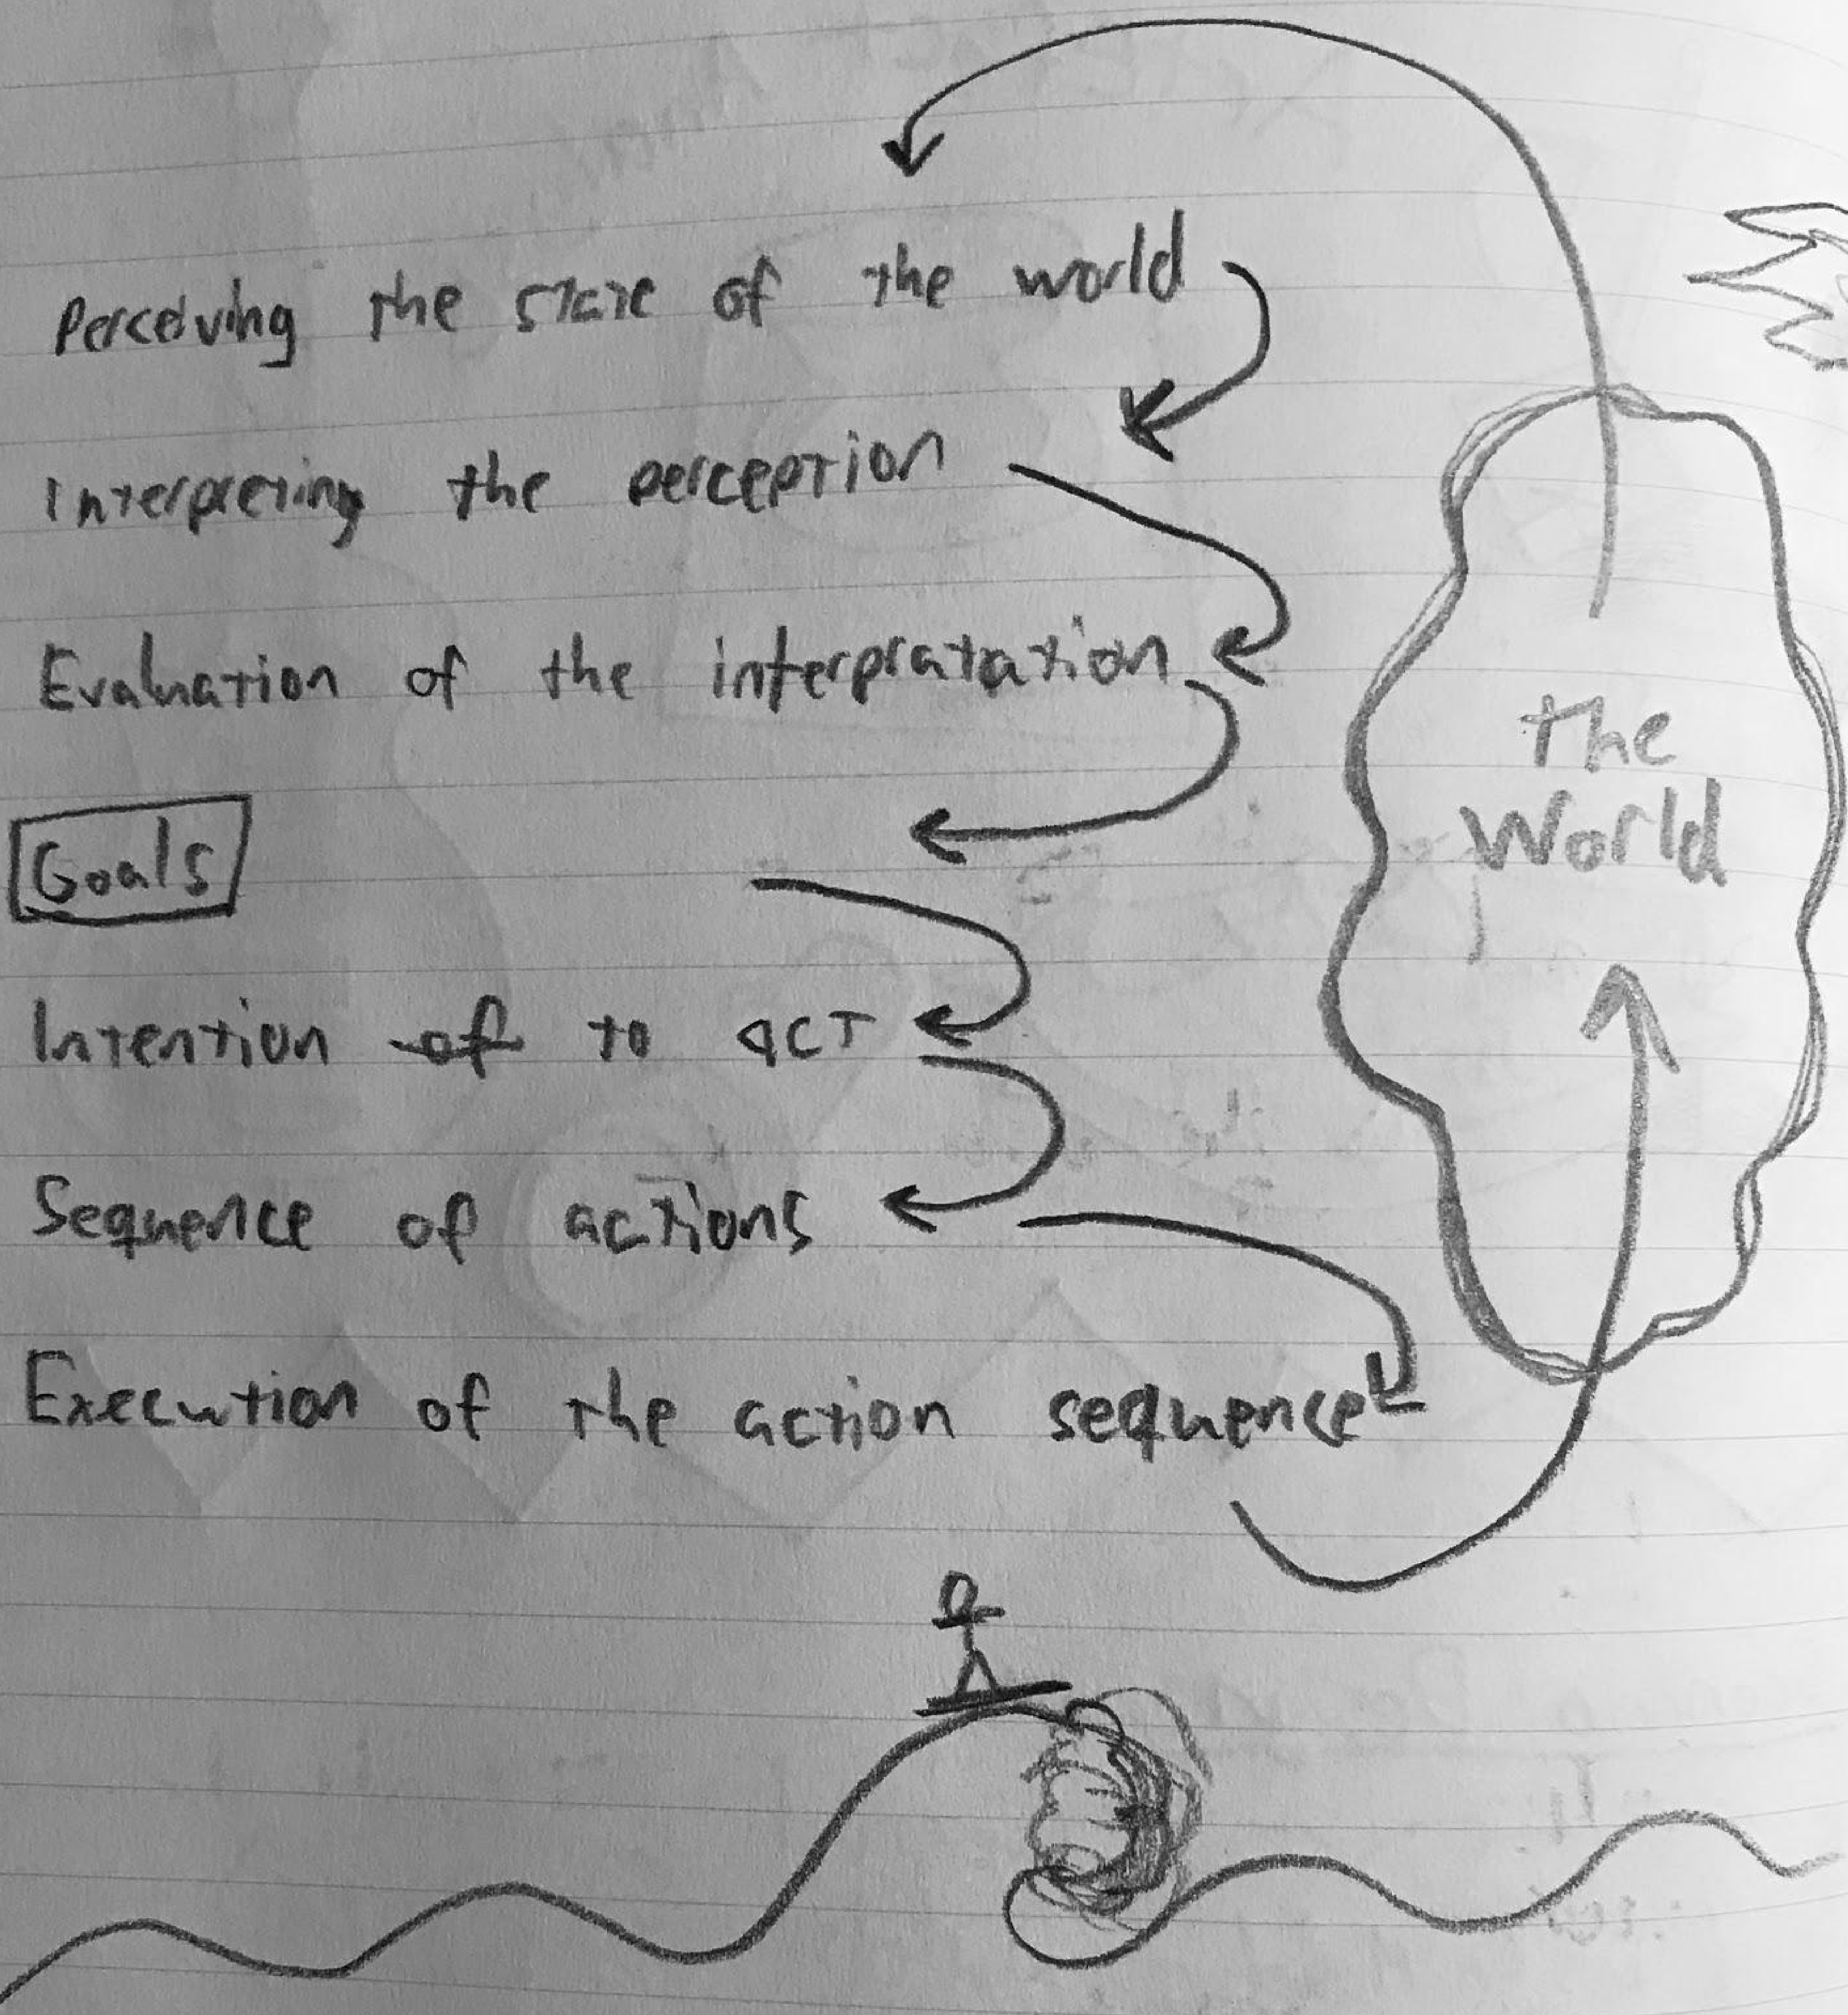 Perceiving the state of the world
Interpreting the perception
Evaluation of the interpratation
Goals
Intention of to act
Sequence of actions
Execution of the action sequence
the
World